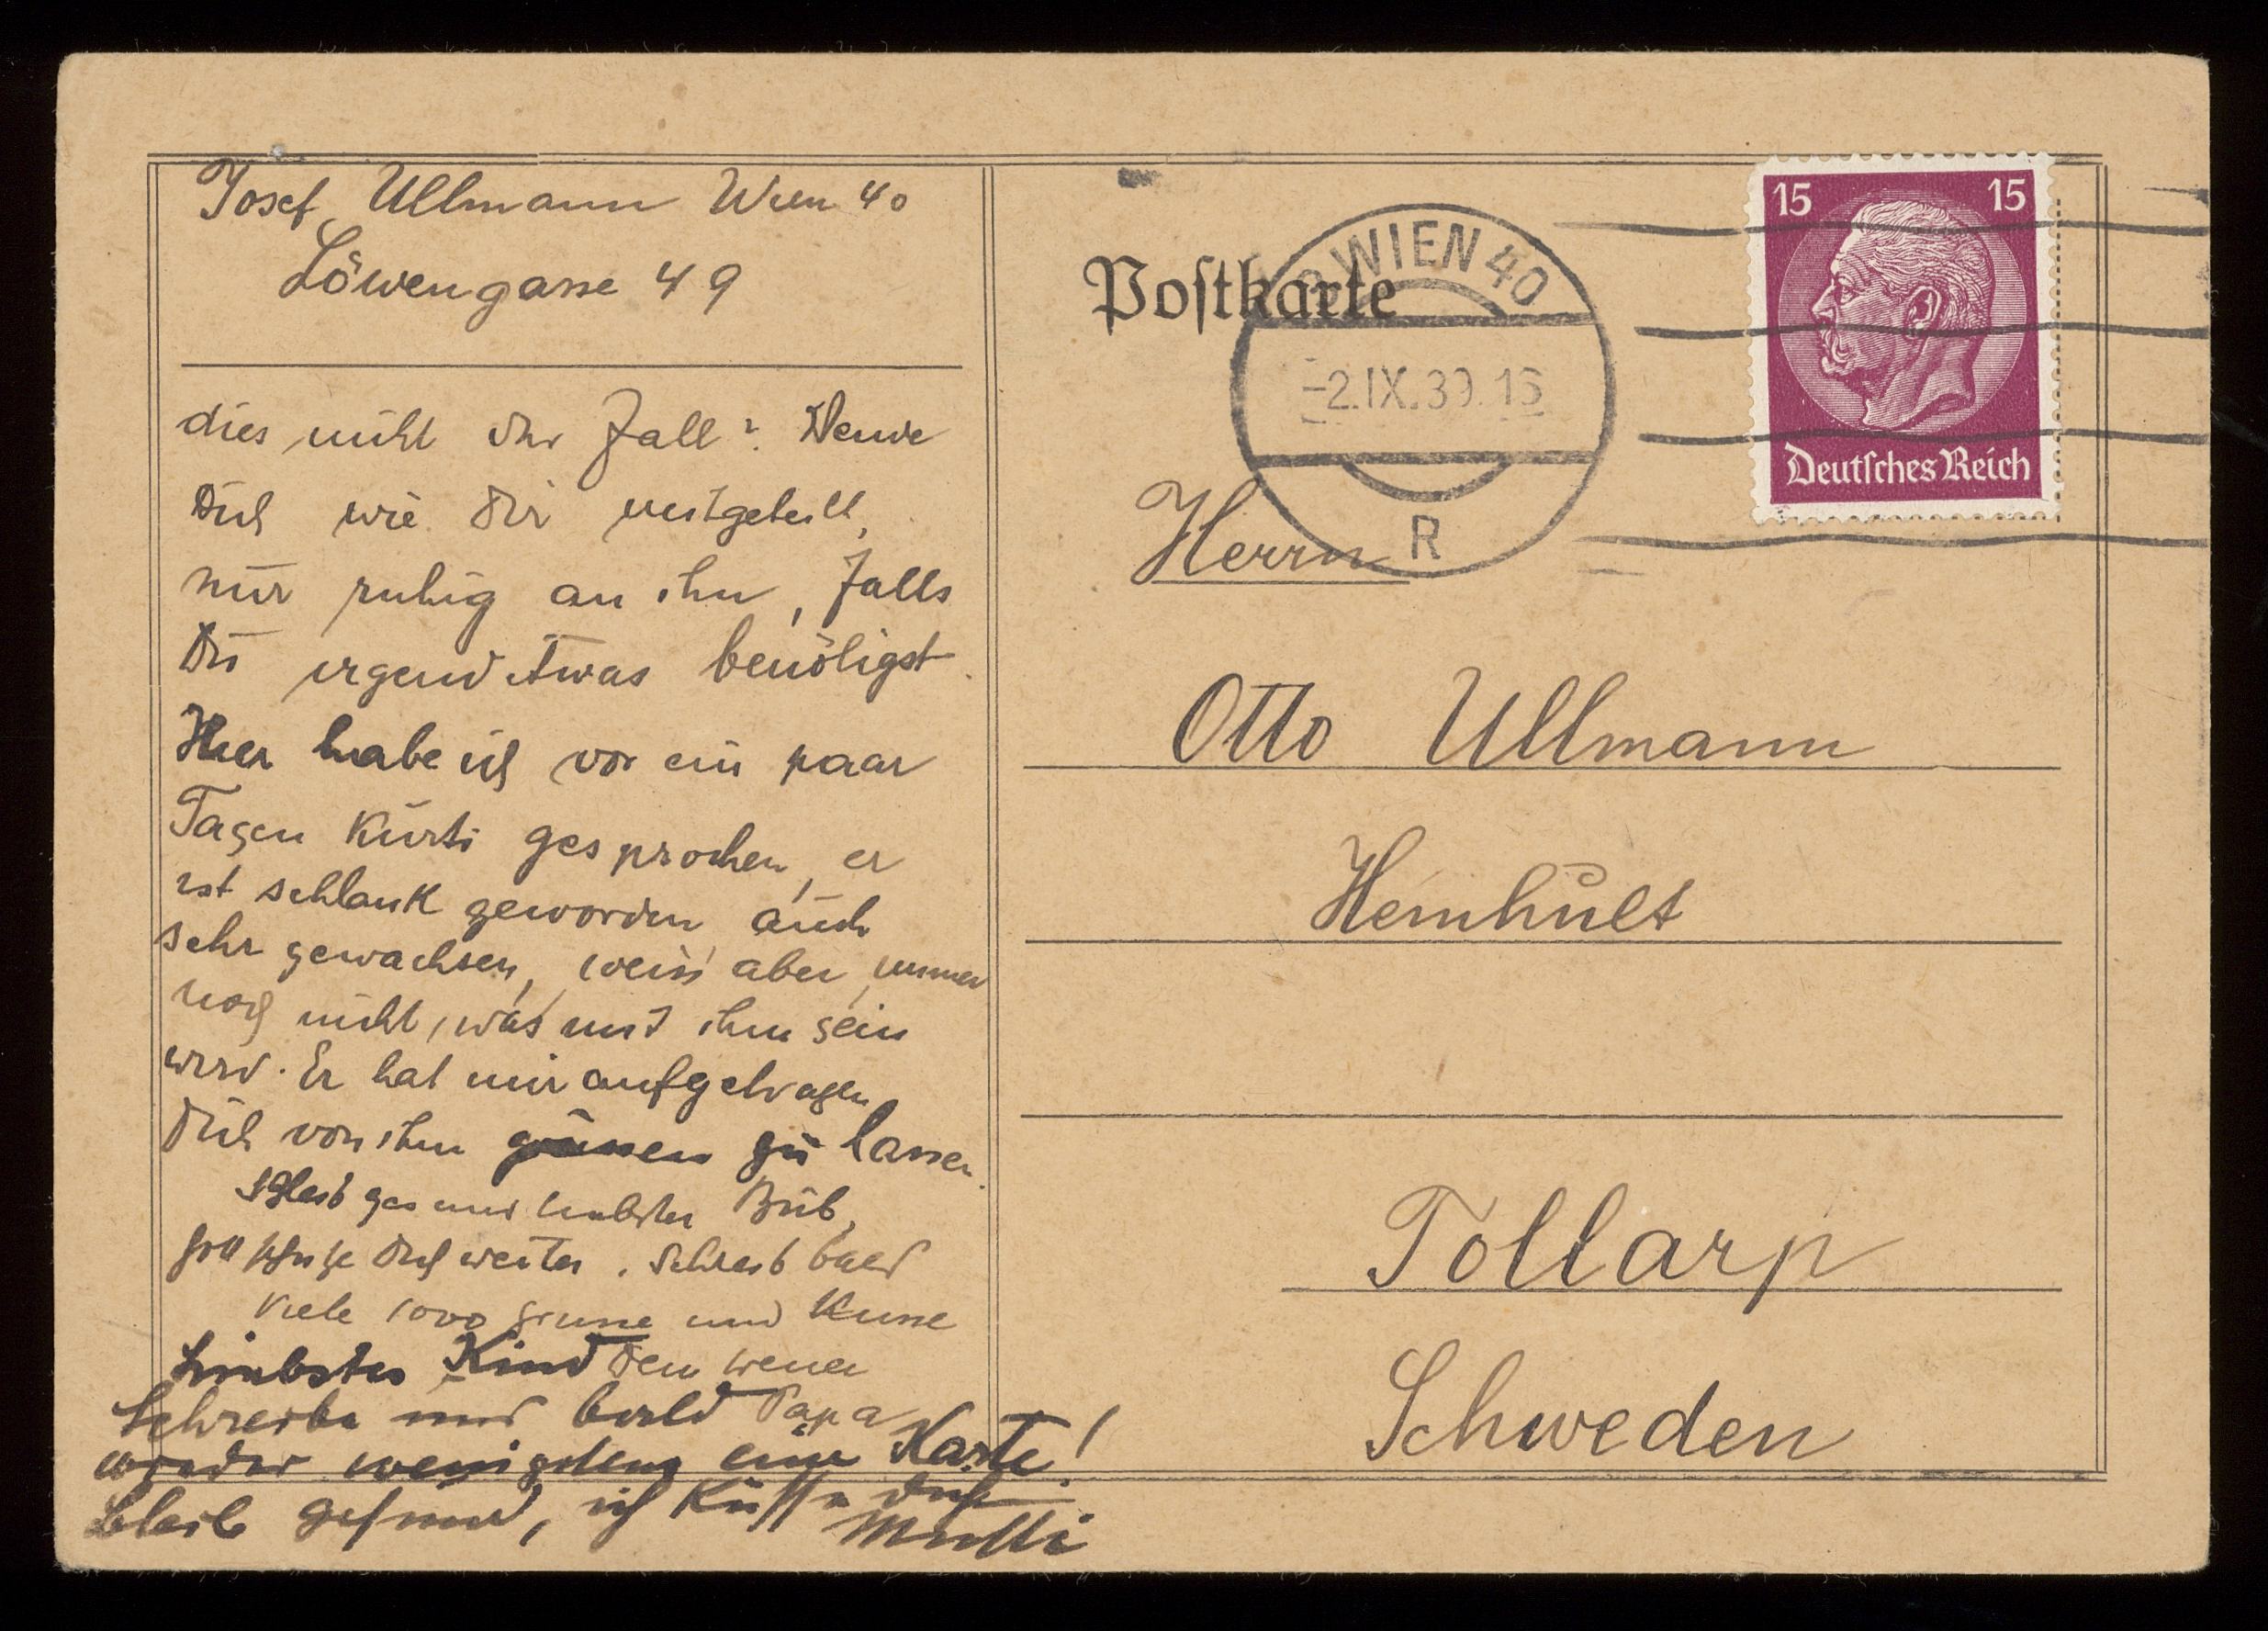 Josef Ullmann Wien 40
Löwengasse 49
dies nicht der Fall? Wende
Dich wie Dir mitgeteilt,
nur ruhig an ihn, falls
Du irgend etwas benötigst.
Hier habe ich vor ein paar
Tagen Kurti gesprochen, er
ist schlank geworden auch
sehr gewachsen, weiss aber immer
noch nicht, was mit ihm sein
wird. Er hat mir aufgetragen
Dich von ihm grüssen zu lassen.
Bleib gesund liebster Bub,
Dich weiter. Schreib bald
Viele 1000 Grüsse und Küsse
liebstes Kind Dein
Papa
Schreibe nur bald
wieder wenigstens eine Karte!
bleib gesund, ich küsse dich
Mutti
Postkarte
WIEN 40
-2.IX.39.16
R
15 15
Deutsches Reich
Herrn
Otto Ullmann
Hemhult
Tollarp
Schweden